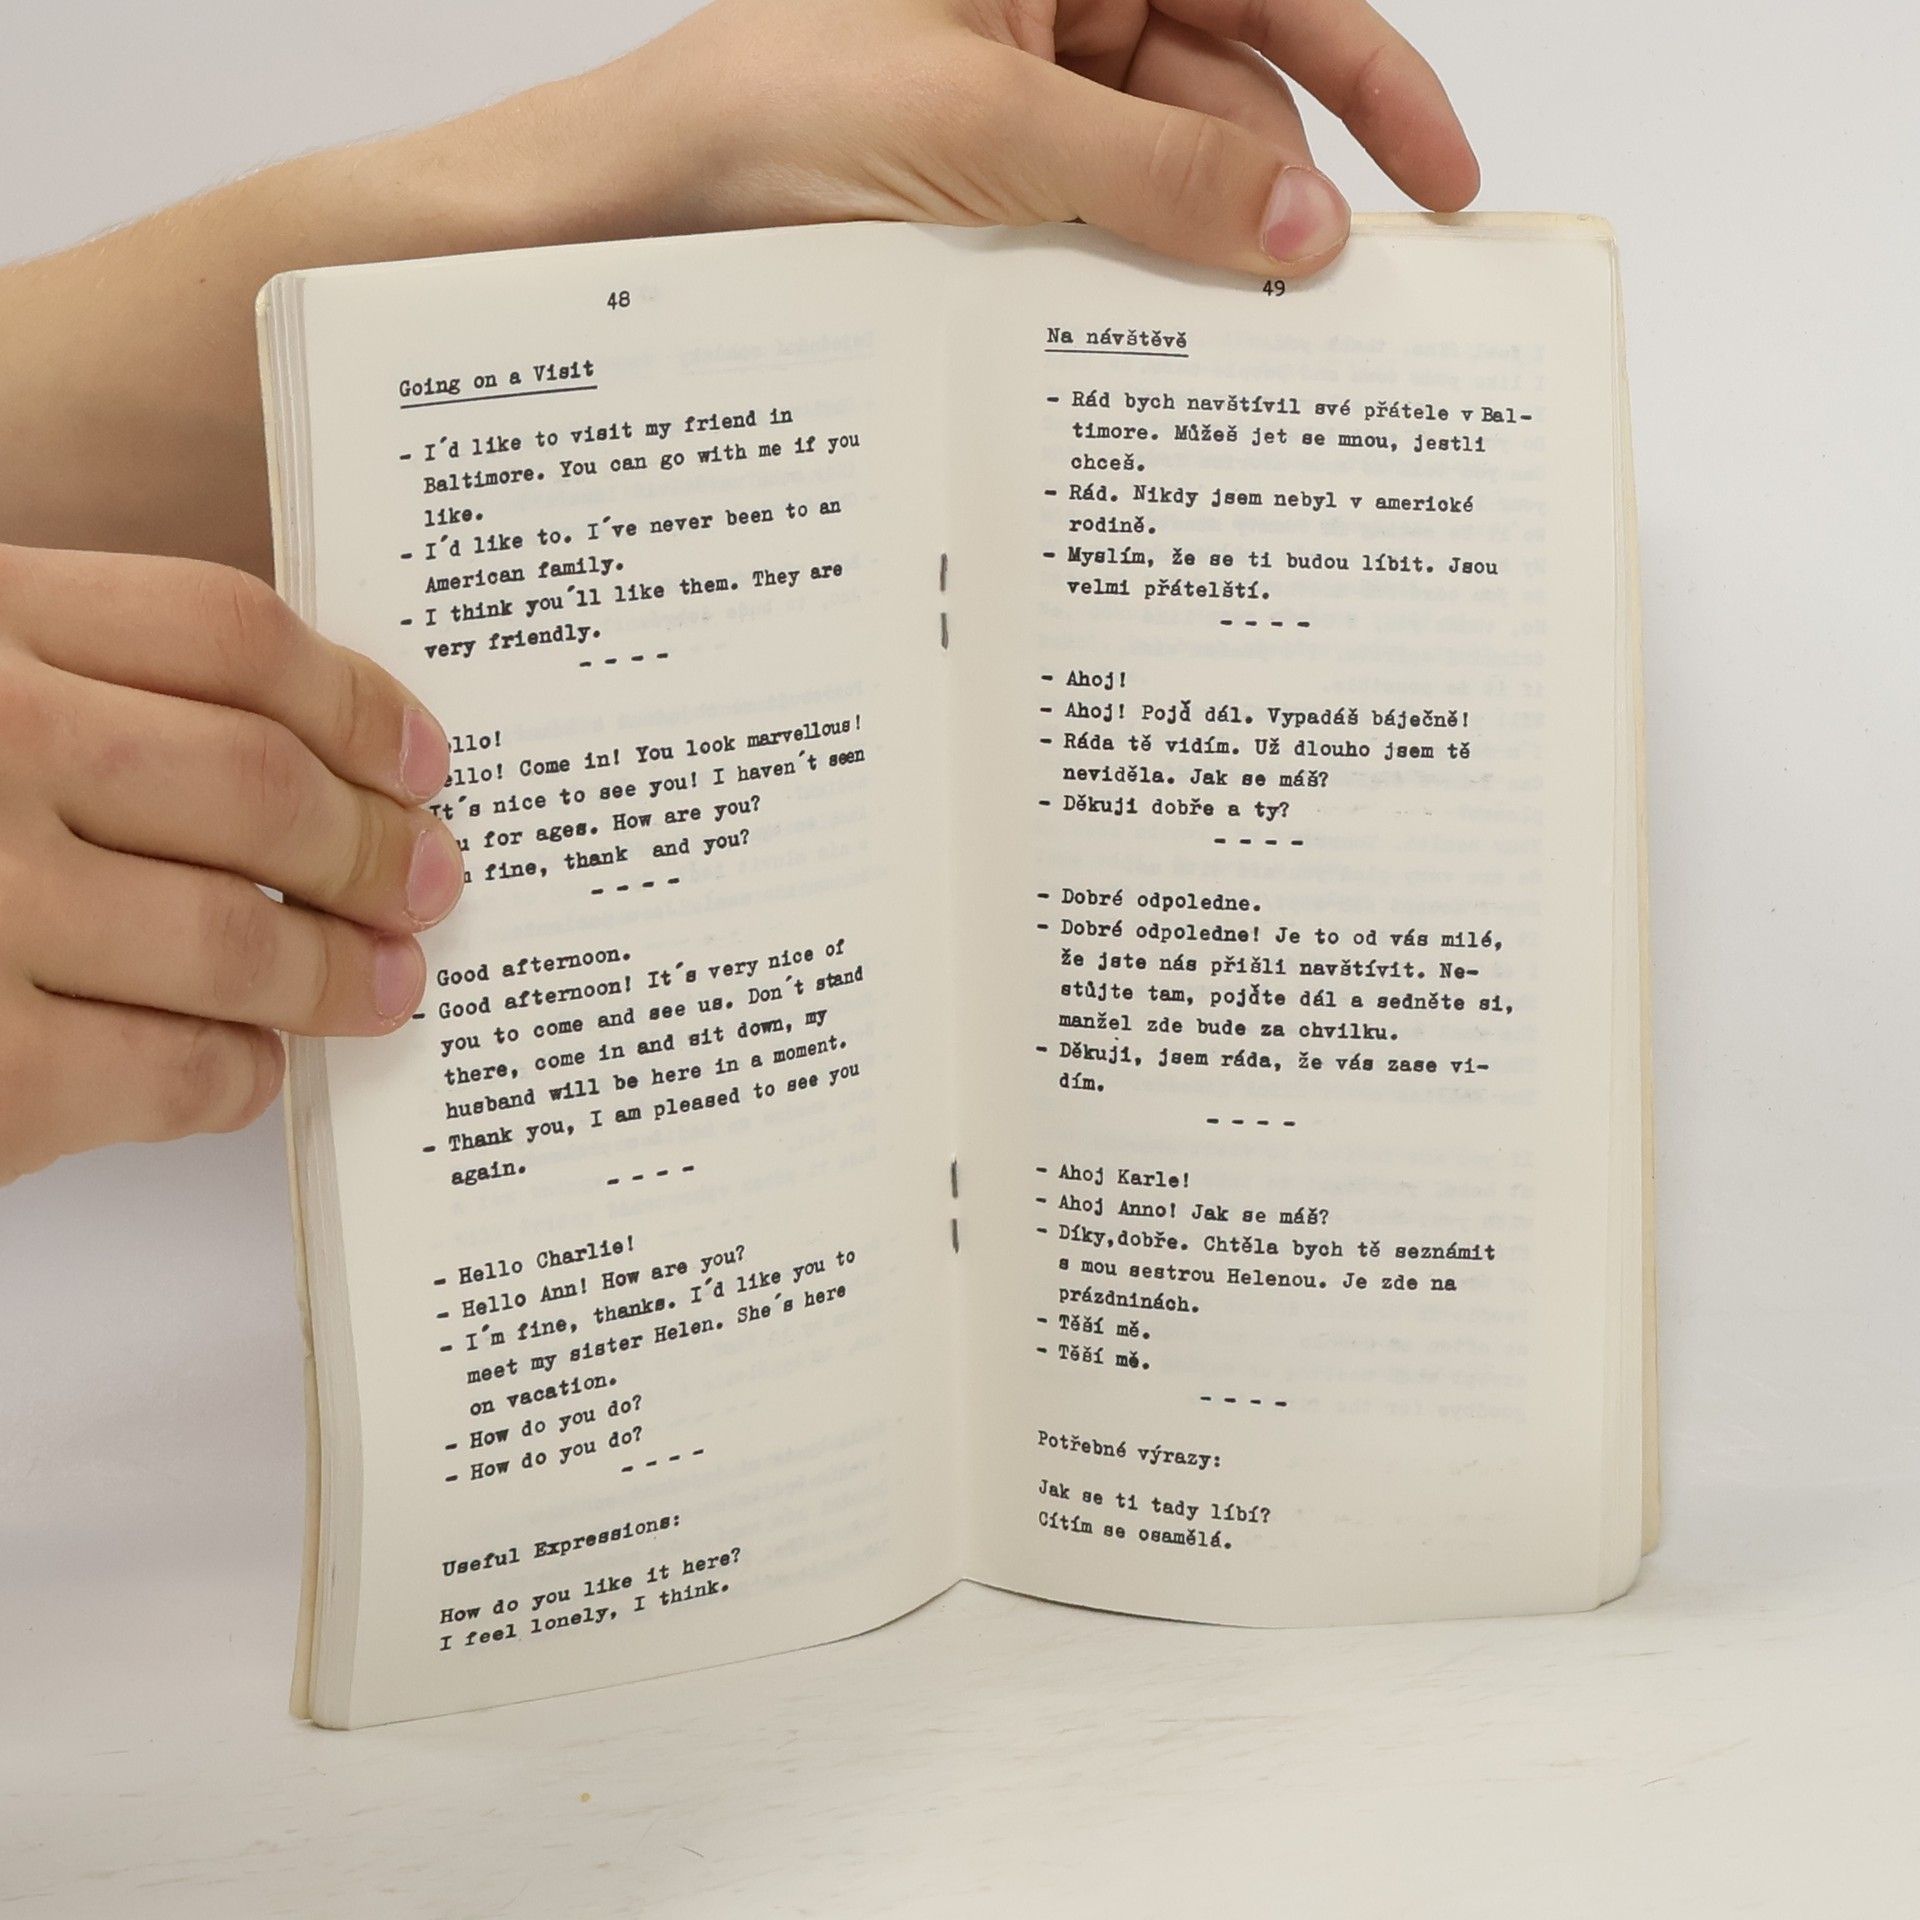 48
Going on a Visit
- I´d like to visit my friend in
Baltimore. You can go with me if you
like.
- I´d like to. I´ve never been to an
American family.
- I think you´ll like them. They are
very friendly.
- - - -
ello!
ello! Come in! You look marvellous!
It´s nice to see you! I haven´t seen
u for ages. How are you?
fine, thank and you?
- - - -
Good afternoon.
- Good afternoon! It´s very nice of
you to come and see us. Don´t stand
there, come in and sit down, my
husband will be here in a moment.
- Thank you, I am pleased to see you
again.
- - - -
- Hello Charlie!
- Hello Ann! How are you?
- I´m fine, thanks. I´d like you to
meet my sister Helen. She´s here
on vacation.
- How do you do?
- How do you do?
- - - -
Useful Expressions:
How do you like it here?
I feel lonely, I think.
49
Na návštěvě
- Rád bych navštívil své přátele v Bal-
timore. Můžeš jet se mnou, jestli
chceš.
- Rád. Nikdy jsem nebyl v americké
rodině.
- Myslím, že se ti budou líbit. Jsou
velmi přátelští.
- - - -
- Ahoj!
- Ahoj! Pojď dál. Vypadáš báječně!
- Ráda tě vidím. Už dlouho jsem tě
neviděla. Jak se máš?
- Děkuji dobře a ty?
- - - -
- Dobré odpoledne.
- Dobré odpoledne! Je to od vás milé,
že jste nás přišli navštívit. Ne-
stůjte tam, pojďte dál a sedněte si,
manžel zde bude za chvilku.
- Děkuji, jsem ráda, že vás zase vi-
dím.
- - - -
- Ahoj Karle!
- Ahoj Anno! Jak se máš?
- Díky,dobře. Chtěla bych tě seznámit
s mou sestrou Helenou. Je zde na
prázdninách.
- Těší mě.
- Těší mě.
- - - -
Potřebné výrazy:
Jak se ti tady líbí?
Cítím se osamělá.